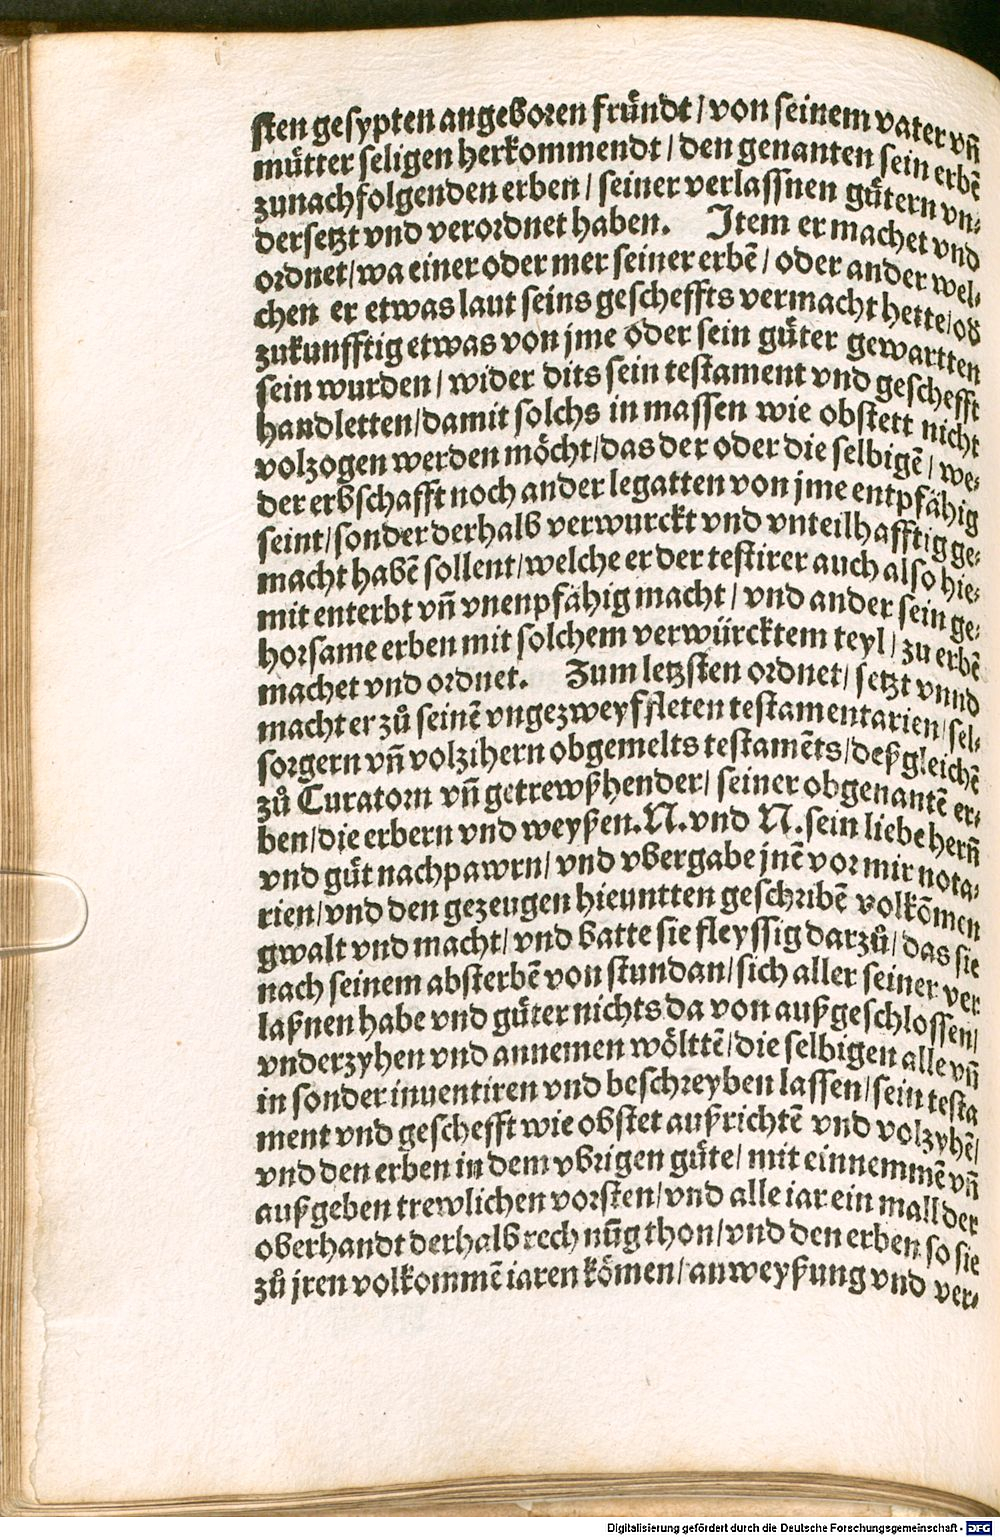 sten gesypten angeboren fründt / von seinem vater vñ
müͤtter seligen herkommendt / den genanten sein erbē
zunachfolgenden erben / seiner verlassnen güͤtern vn⸗
dersetzt vnd verordnet haben. Item er machet vnd
ordnet / wa einer oder mer seiner erbē / oder ander wel⸗
chen er etwas laut seins gescheffts vermacht hette / od
zukunfftig etwas von jme oder sein güͤter gewartten
sein wurden / wider dits sein testament vnd geschefft
handletten / damit solchs in massen wie obstett nicht
volzogen werden möcht / das der oder die selbigē / we⸗
der erbschafft noch ander legatten von jme entpfähig
seint / sonder derhalb verwurckt vnd vnteilhafftig ge⸗
macht habē sollent / welche er der testirer auch also hie⸗
mit enterbt vñ vnenpfähig macht / vnd ander sein ge⸗
horsame erben mit solchem verwürcktem teyl / zu erbē
machet vnd ordnet. Zum letzsten ordnet / setzt vnnd
macht er zů seinē vngezweyffleten testamentarien / sel⸗
sorgern vñ volzihern obgemelts testamēts / deßgleichē
zů Curatorn vñ getrewßhender / seiner obgenantē er⸗
ben / die erbern vnd weyßen. N. vnd N. sein liebe herñ
vnd güt nachpawrn / vnd vbergabe jnē vor mir nota⸗
rien / vnd den gezeugen hieuntten geschribē volkōmen
gwalt vnd macht / vnd batte sie fleyssig darzů / das sie
nach seinem absterbē von stundan / sich aller seiner ver
laßnen habe vnd güͤter nichts da von außgeschlossen /
vnderzyhen vnd annemen wölttē / die selbigen alle vñ
in sonder inuentiren vnd beschreyben lassen / sein testa
ment vnd geschefft wie obstet außrichtē vnd volzyhē /
vnd den erben in dem vbrigen güͤte / mit einnemmē vñ
außgeben trewlichen vorsten / vnd alle iar ein mall der
oberhandt derhalb rechnūg thon / vnd den erben so sie
zů jren volkommē iaren kömen / anweyßung vnd ver⸗
Digitalisierung gefördert durch die Deutsche Forschungsgemeinschaft - DFG